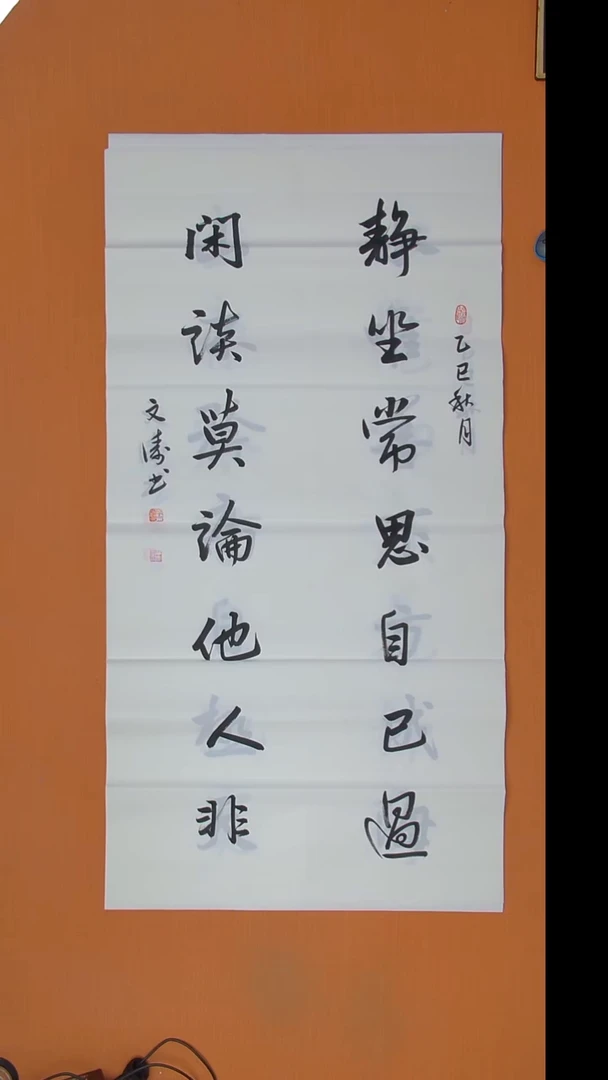 乙巳秋月
静坐常思自己過
闲談莫論他人非
文涛书